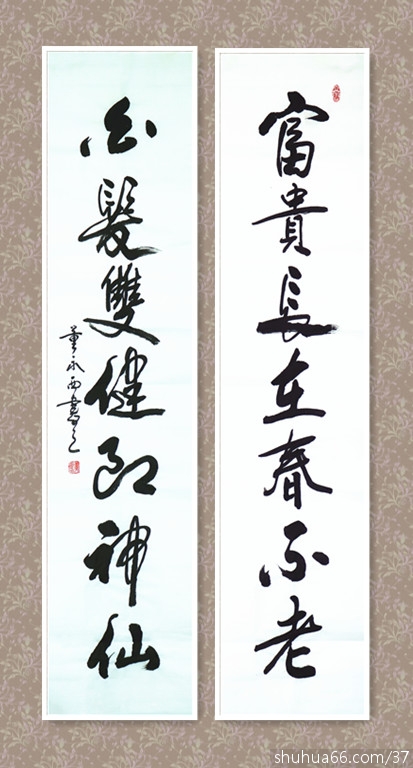 富貴長在春不老
白髮雙健即神仙
董永西書之
shuhua66.com/37